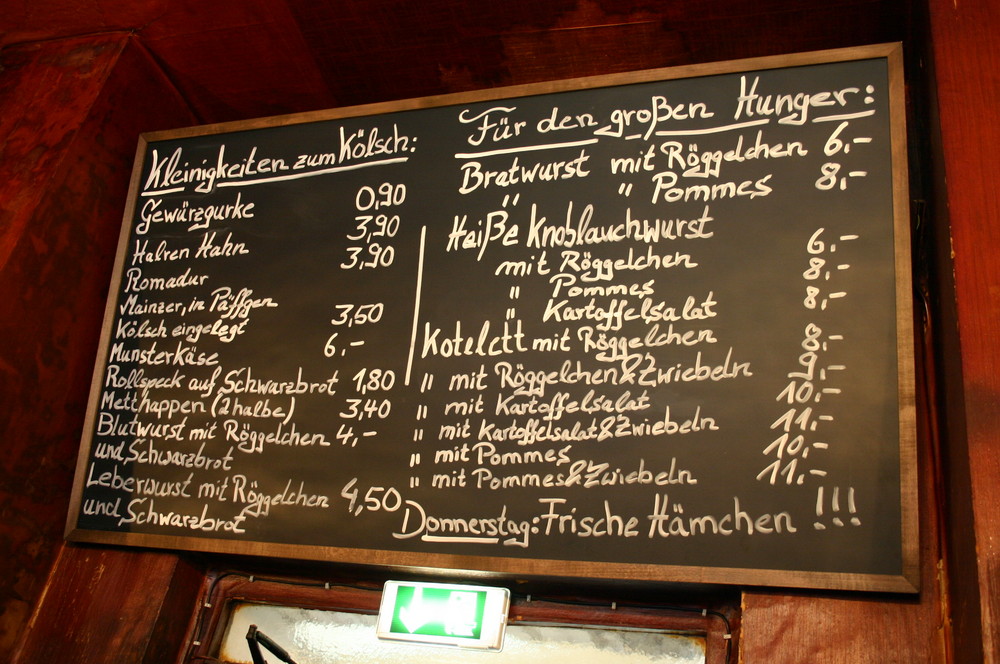 Kleinigkeiten zum Kölsch:
Gewürzgurke 0,90
Halven Hahn 3,90
Romadur 3,90
Mainzer, in Päffgen
Kölsch eingelegt 3,50
Munsterkäse 6,-
Rollspeck auf Schwarzbrot 1,80
Metthappen (2 halbe) 3,40
Blutwurst mit Röggelchen 4,-
und Schwarzbrot
Leberwurst mit Röggelchen 4,50
und Schwarzbrot
Für den großen Hunger:
Bratwurst mit Röggelchen 6,-
" " Pommes 8,-
Heiße Knoblauchwurst
mit Röggelchen 6,-
" Pommes 8,-
" Kartoffelsalat 8,-
Kotelett mit Röggelchen 8,-
" mit Röggelchen & Zwiebeln 9,-
" mit Kartoffelsalat 10,-
" mit Kartoffelsalat & Zwiebeln 11,-
" mit Pommes 10,-
" mit Pommes & Zwiebeln 11,-
Donnerstag: Frische Hämchen !!!